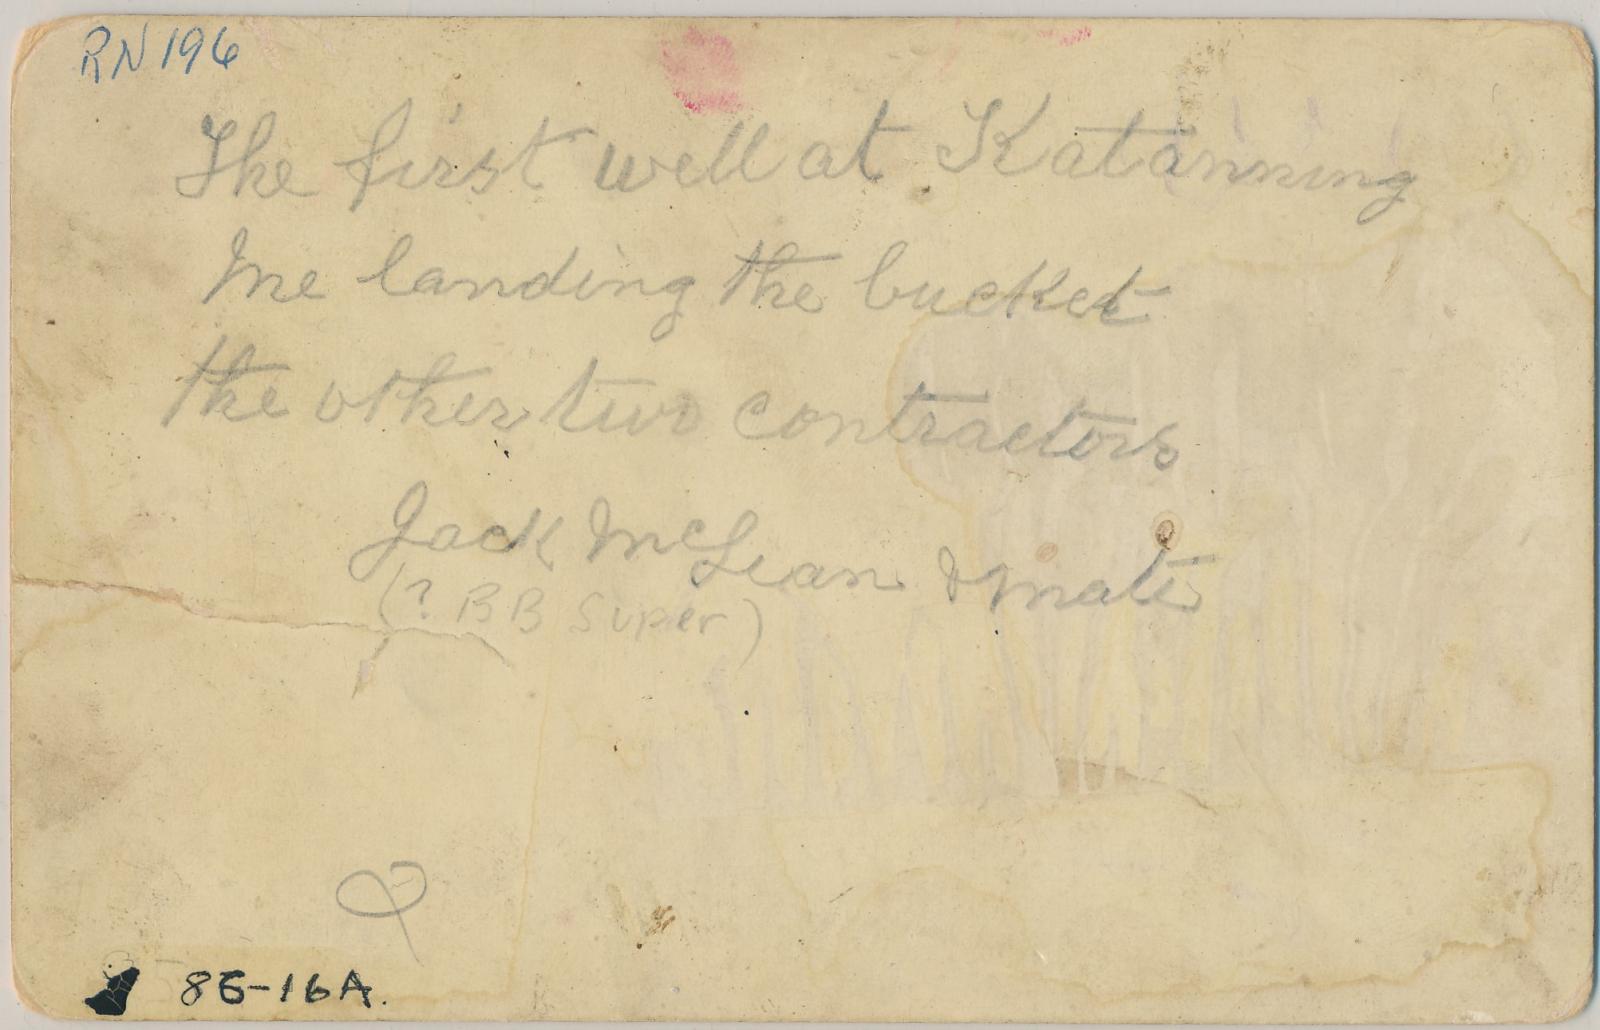 RN 196
The first well at Katanning
Me landing the bucket
the other two contractors
Jack McLean & mate
(? BB Super)
86-16A.